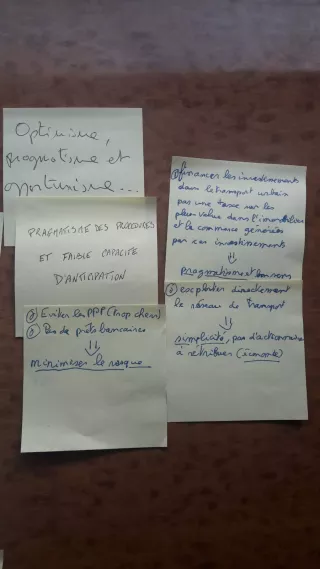 Optimisme,
pragmatisme et
opportunisme...
PRAGMATISME DES PROCEDURES
ET FAIBLE CAPACITE
D'ANTICIPATION
① Eviter les PPP (trop chers)
② Pas de prêts bancaires
⇓
minimiser le risque
① financer les investissements
dans le transport urbain
par une taxe sur les
plus value dans l'immobilier
et le commerce générées
par ces investissements
⇓
Pragmatisme et bon sens
② exploiter directement
le réseau de transport
⇓
simplicité, pas d'actionnaires
à rétribuer (économie)